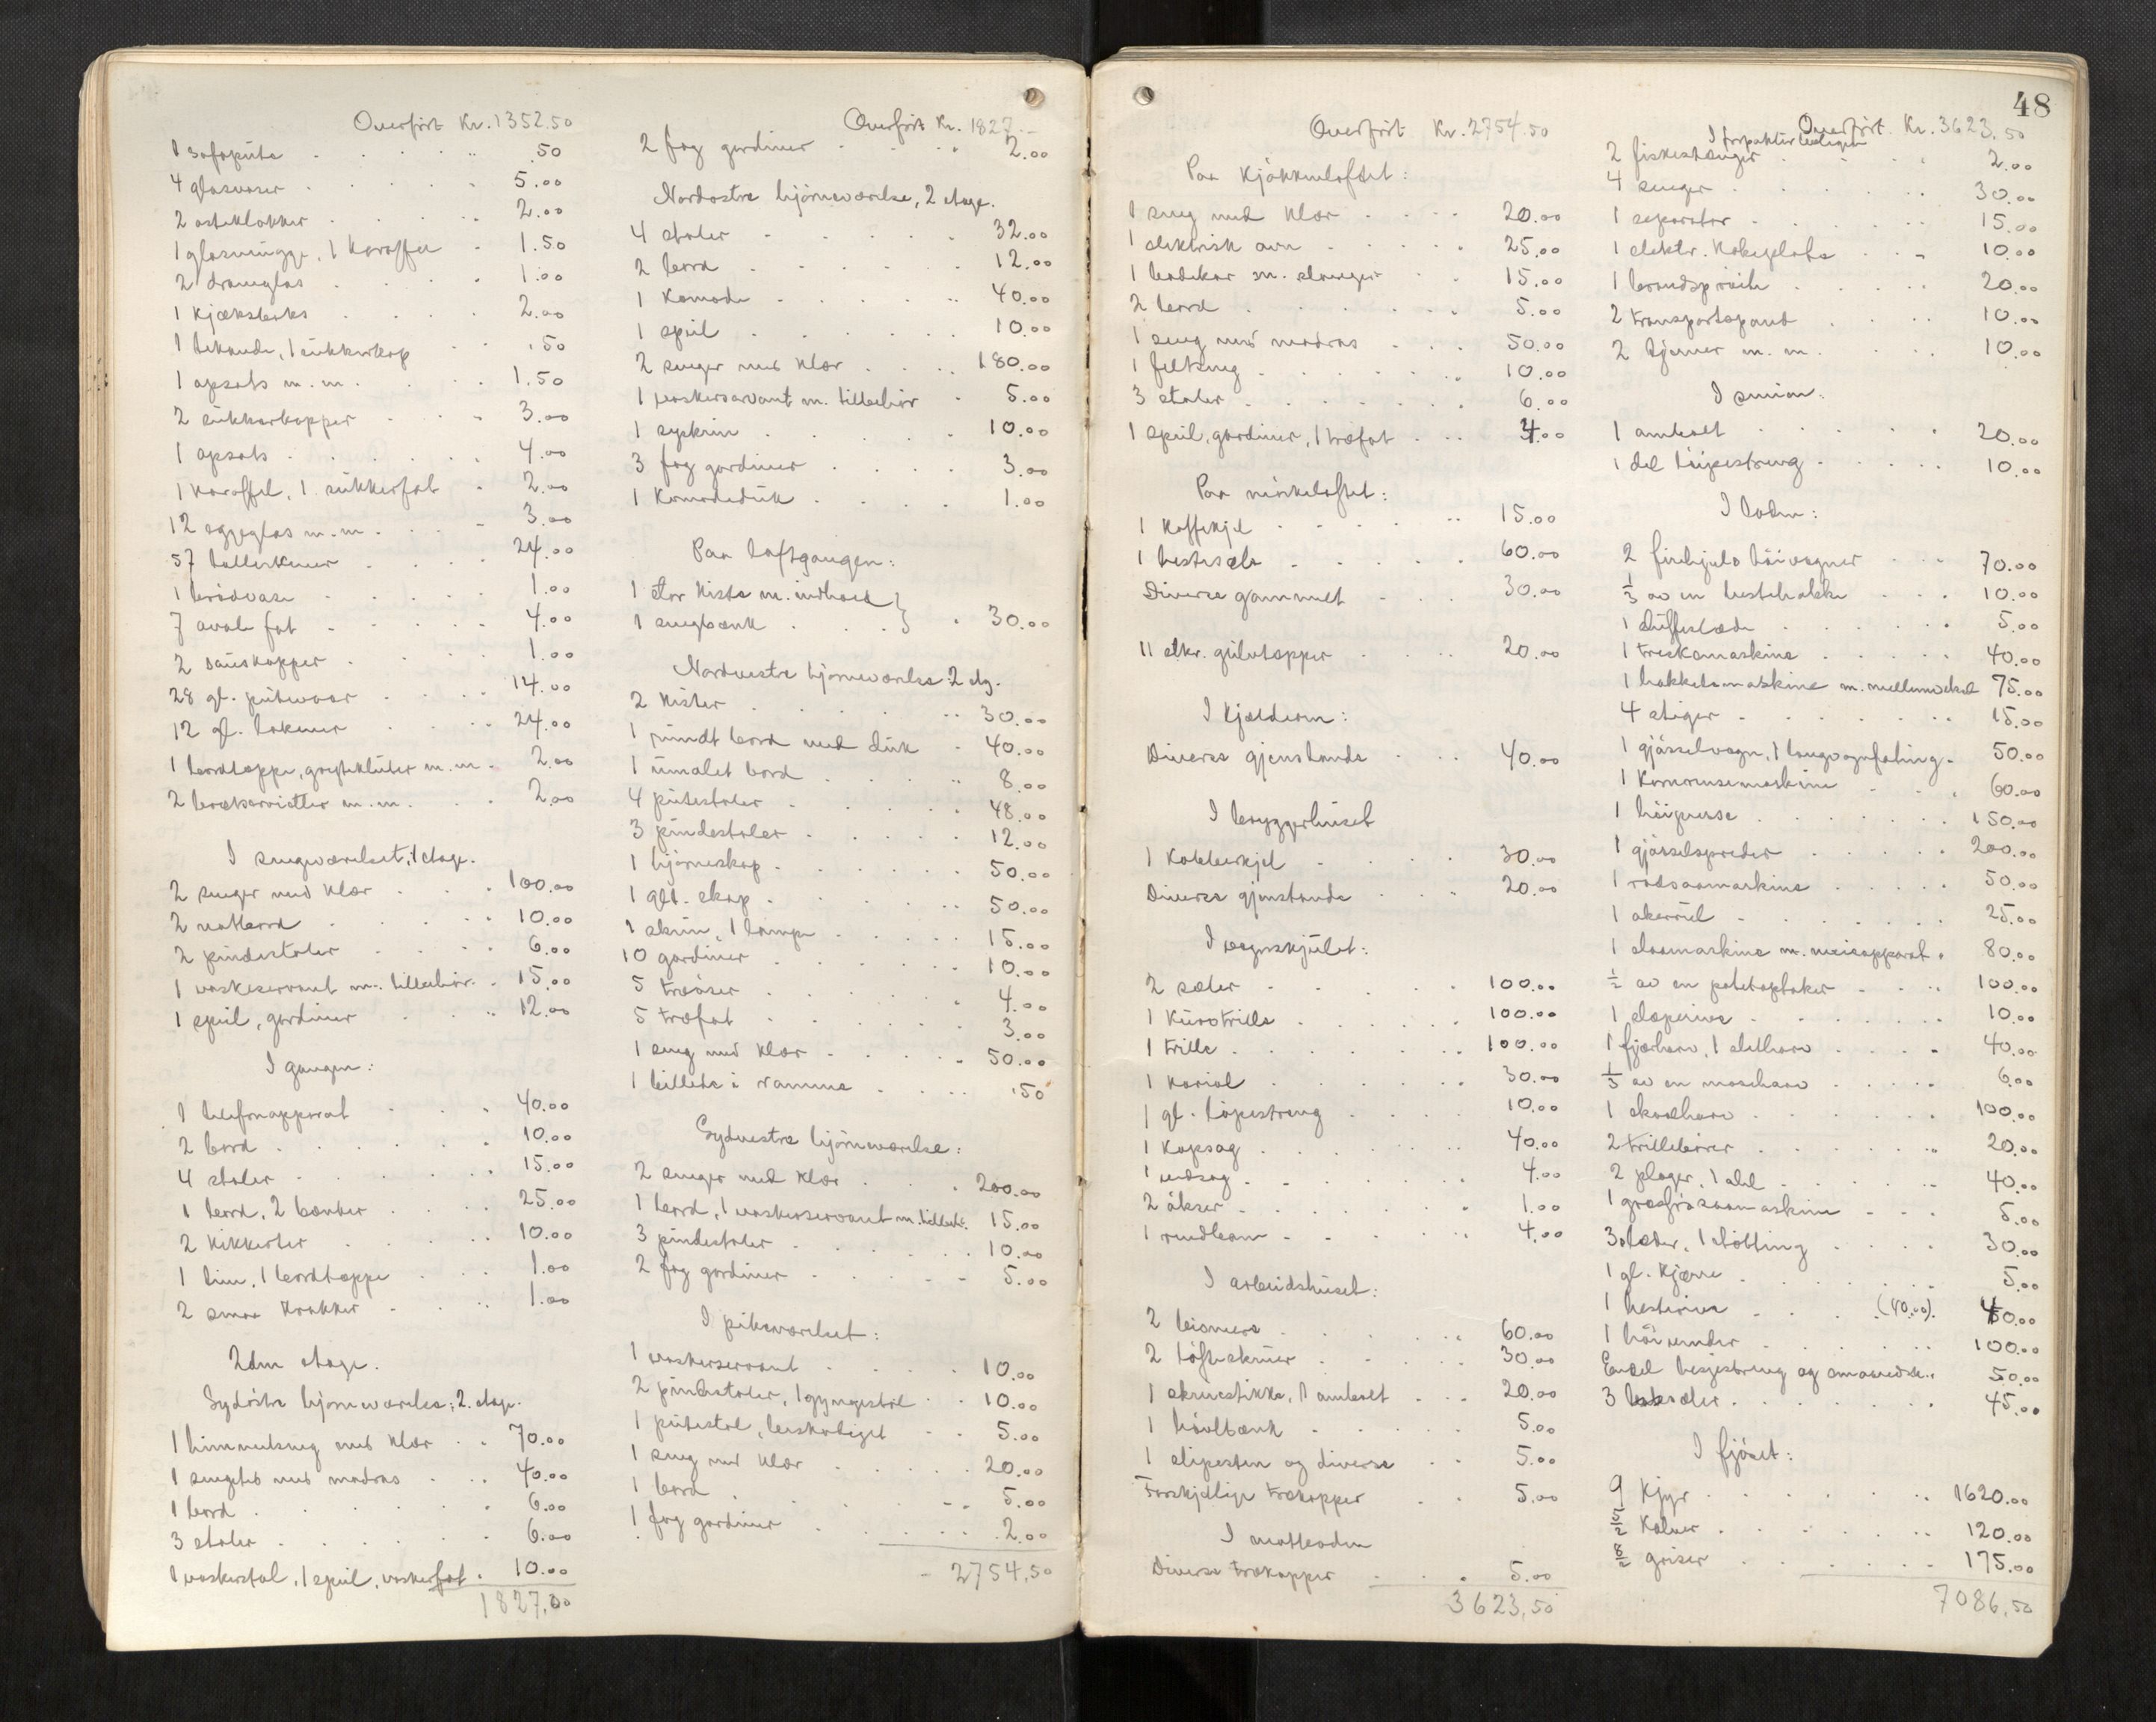 Overført Kr. 1352.50
1 sofapute .50
4 glasvaser 5.00
2 osteklokker 2.00
1 glasmugge, 1 karaffel 1.50
2 dramglas 1.00
1 kjæksboks 2.00
1 tekande, 1 sukkerkop .50
1 opsats m.m. 1.50
2 sukkerkopper 3.00
1 opsats 4.00
1 karaffel, 1 sukkerfat 2.00
12 eggeglas m.m. 3.00
57 tallerkener 24.00
1 brødvase 1.00
7 ovale fat 4.00
2 sauskopper 1.00
28 gl. putevaar 14.00
12 gl. lakener 24.00
1 bordteppe, grytekluter m.m. 2.00
2 brækservietter m.m. 2.00
I sengeværelset, 1 etage.
2 senger med klær 100.00
2 natbord 10.00
2 pindestoler 6.00
1 vaskeservant m. tilbehør 15.00
1 speil, gardiner 12.00
I gangen:
1 telefonapparat 40.00
2 bord 10.00
4 stoler 15.00
1 bord, 2 bænker 25.00
2 kikkerter 10.00
1 lim, 1 bordteppe 1.00
2 smaa krakker 1.00
2den etage.
Sydøstre hjørneværelse, 2. etage.
1 himmelseng med klær 70.00
1 sengested med madras 40.00
1 bord 6.00
3 stoler 6.00
1 vaskestol, 1 speil, vaskefat 10.00
1827.00
Overført Kr. 1827.-
2 fag gardiner 2.00
Nordøstre hjørneværelse, 2 etage.
4 stoler 32.00
2 bord 12.00
1 komode 40.00
1 speil 10.00
2 senger med klær 180.00
1 vaskeservant m. tilbehør 5.00
1 syskrin 10.00
3 fag gardiner 3.00
1 komodeduk 1.00
Paa loftgangen:
1 stor kiste m. indhold }
1 sengbænk } 30.00
Nordvestre hjørneværelse 2 etg.
2 kister 30.00
1 rundt bord med duk 40.00
1 umalet bord 8.00
4 putestoler 48.00
3 pindestoler 12.00
1 hjørneskap 50.00
1 glt. skap 50.00
1 skrin, 1 lampe 15.00
10 gardiner 10.00
5 træøser 4.00
5 træfat 3.00
1 seng med klær 50.00
1 billede i ramme .50
Sydvestre hjørneværelse:
2 senger med klær 200.00
1 bord, 1 vaskeservant m. tilbeh. 15.00
3 pindestoler 10.00
2 fag gardiner 5.00
I pikeværelset:
1 vaskeservant 10.00
2 pindestoler, 1 gyngestol 10.00
1 putestol, beskadiget 5.00
1 seng med klær 20.00
1 bord 5.00
1 fag gardiner 2.00
2754.50
48
Overført Kr. 2754.50
Paa kjøkkenloftet:
1 seng med klær 20.00
1 elektrisk ovn 25.00
1 badekar m. slanger 15.00
2 bord 5.00
1 seng med madras 50.00
1 feltseng 10.00
3 stoler 6.00
1 speil, gardiner, 1 træfat 4.00
Paa mørkeloftet:
1 kaffekjel 15.00
1 hestesele 60.00
Diverse gammelt 30.00
11 stkr. gulvtepper 20.00
I kjelderen:
Diverse gjenstande 40.00
I bryggerhuset
1 kobberkjel 30.00
Diverse gjenstande 20.00
I vognskjulet:
2 sæler 100.00
1 kurvtrille 100.00
1 trille 100.00
1 kariol 30.00
1 gl. løpestreng 10.00
1 kapsag 40.00
1 vedsag 4.00
2 økser 1.00
1 vendbom 4.00
I arbeidshuset:
2 bismere 60.00
2 løfteskruer 30.00
1 skruestikke, 1 ambolt 20.00
1 høvlbænk 5.00
1 slipesten og diverse 5.00
Forskjellige trækopper 5.00
I matboden
Diverse trækopper 5.00
3623.50
Overført Kr. 3623.50
2 fiskestænger 2.00
4 senger 30.00
1 separator 15.00
1 elektr. kokeplate 10.00
1 brandsprøite 20.00
2 transportspand 10.00
2 kjerner m.m. 10.00
I smien:
1 ambolt 20.00
1 del løipestreng 10.00
I loden:
2 firehjuls høivogner 70.00
1/3 av en hestehakke 10.00
1 sluffeslæde 5.00
1 treskemaskine 40.00
1 hakkelsmaskine m. mellemveksel 75.00
4 stiger 15.00
1 gjødselvogn, 1 langvognfæling 50.00
1 kornrensemaskine 60.00
1 høipresse 150.00
1 gjødselspreder 200.00
1 radsaamaskine 50.00
1 akerrul 25.00
1 slaamaskine m. meieapparat 80.00
1/2 av en potetoptaker 100.00
1 sloperive 10.00
1 fjærharv, 1 sletharv 40.00
1/3 av en moseharv 6.00
1 skaalharv 100.00
2 trillebører 20.00
2 ploger, 1 ahl 40.00
1 græsfrøsaamaskine 5.00
3 slæder, 1 støtting 30.00
1 gl. kjærre 5.00
1 hesterive (40.00) 40.00
1 høivender 100.00
Endel hesjestreng og smaaredsk. 50.00
3 sæler 45.00
I fjøset:
9 kjyr 1620.00
5/2 kalver 120.00
8/2 griser 175.00
7086.50